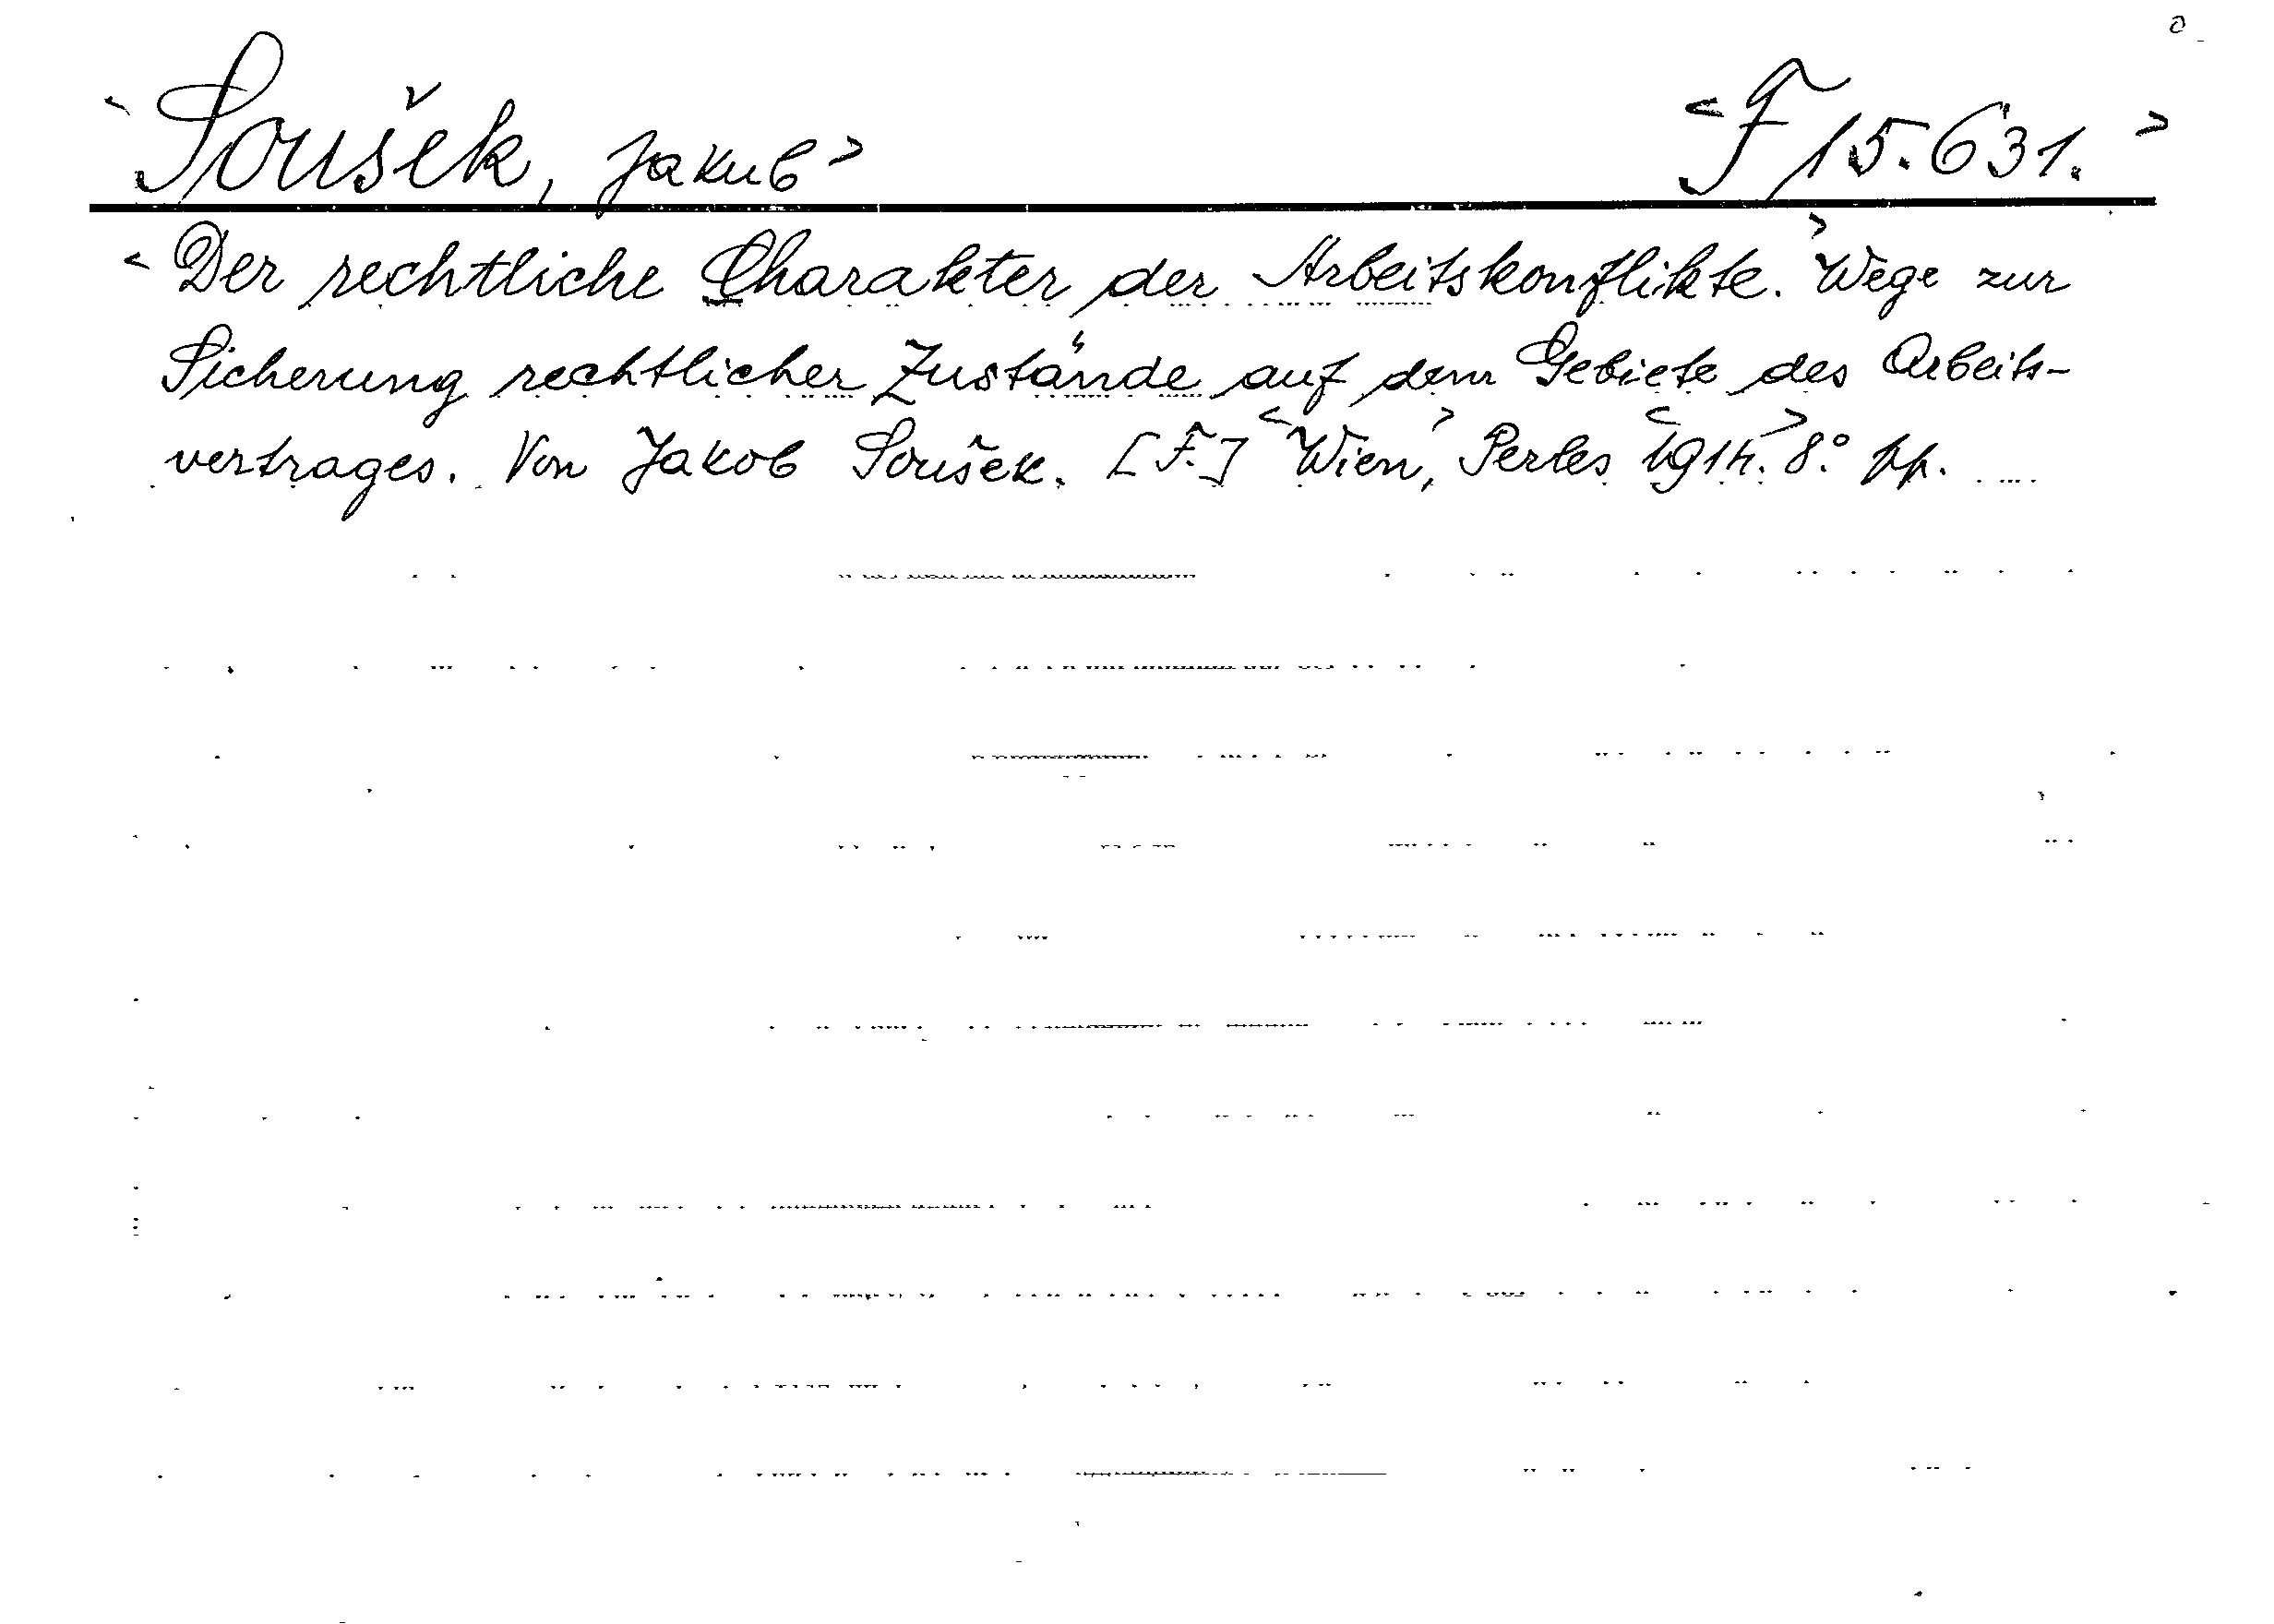 <Soušek, Jakub> <F 15.631.>
<Der rechtliche Charakter der Arbeitskonflikte.> Wege zur
Sicherung rechtlicher Zustände auf dem Gebiete des Arbeits-
vertrages. Von Jakob Soušek. [F.] <Wien,> Perles <1914.> 8.° pp.